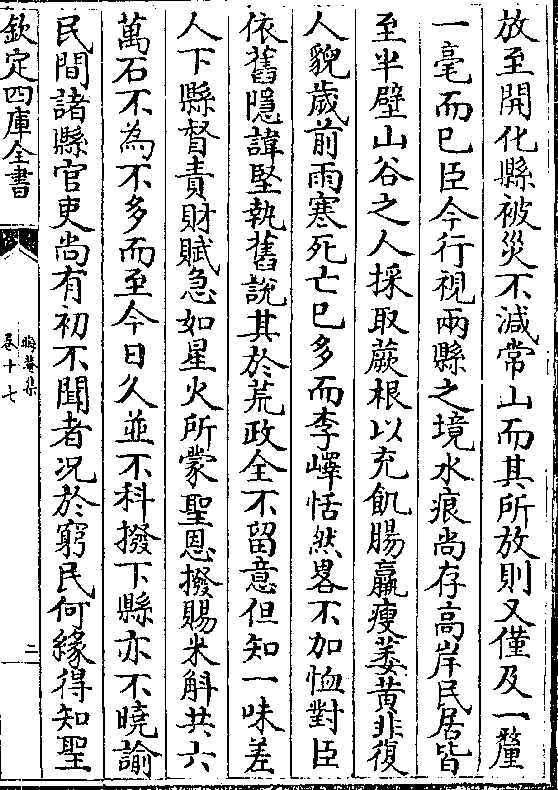 放至開化縣被災不減常山而其所放則又僅及一釐
一毫而已臣今行視兩縣之境水痕尚存高岸民居皆
至半壁山谷之人採取蕨根以充飢腸羸瘦萎黄非復
人貌歲前雨寒死亡已多而李嶧恬然畧不加恤對臣
依舊隱諱堅執舊說其於荒政全不留意但知一味差
人下縣督責財賦急如星火所蒙聖恩撥賜米斛共六
萬石不為不多而至今日久並不科撥下縣亦不曉諭
民間諸縣官吏尚有初不聞者况於窮民何緣得知聖
欽定四庫全書
晦菴集
卷十七
二